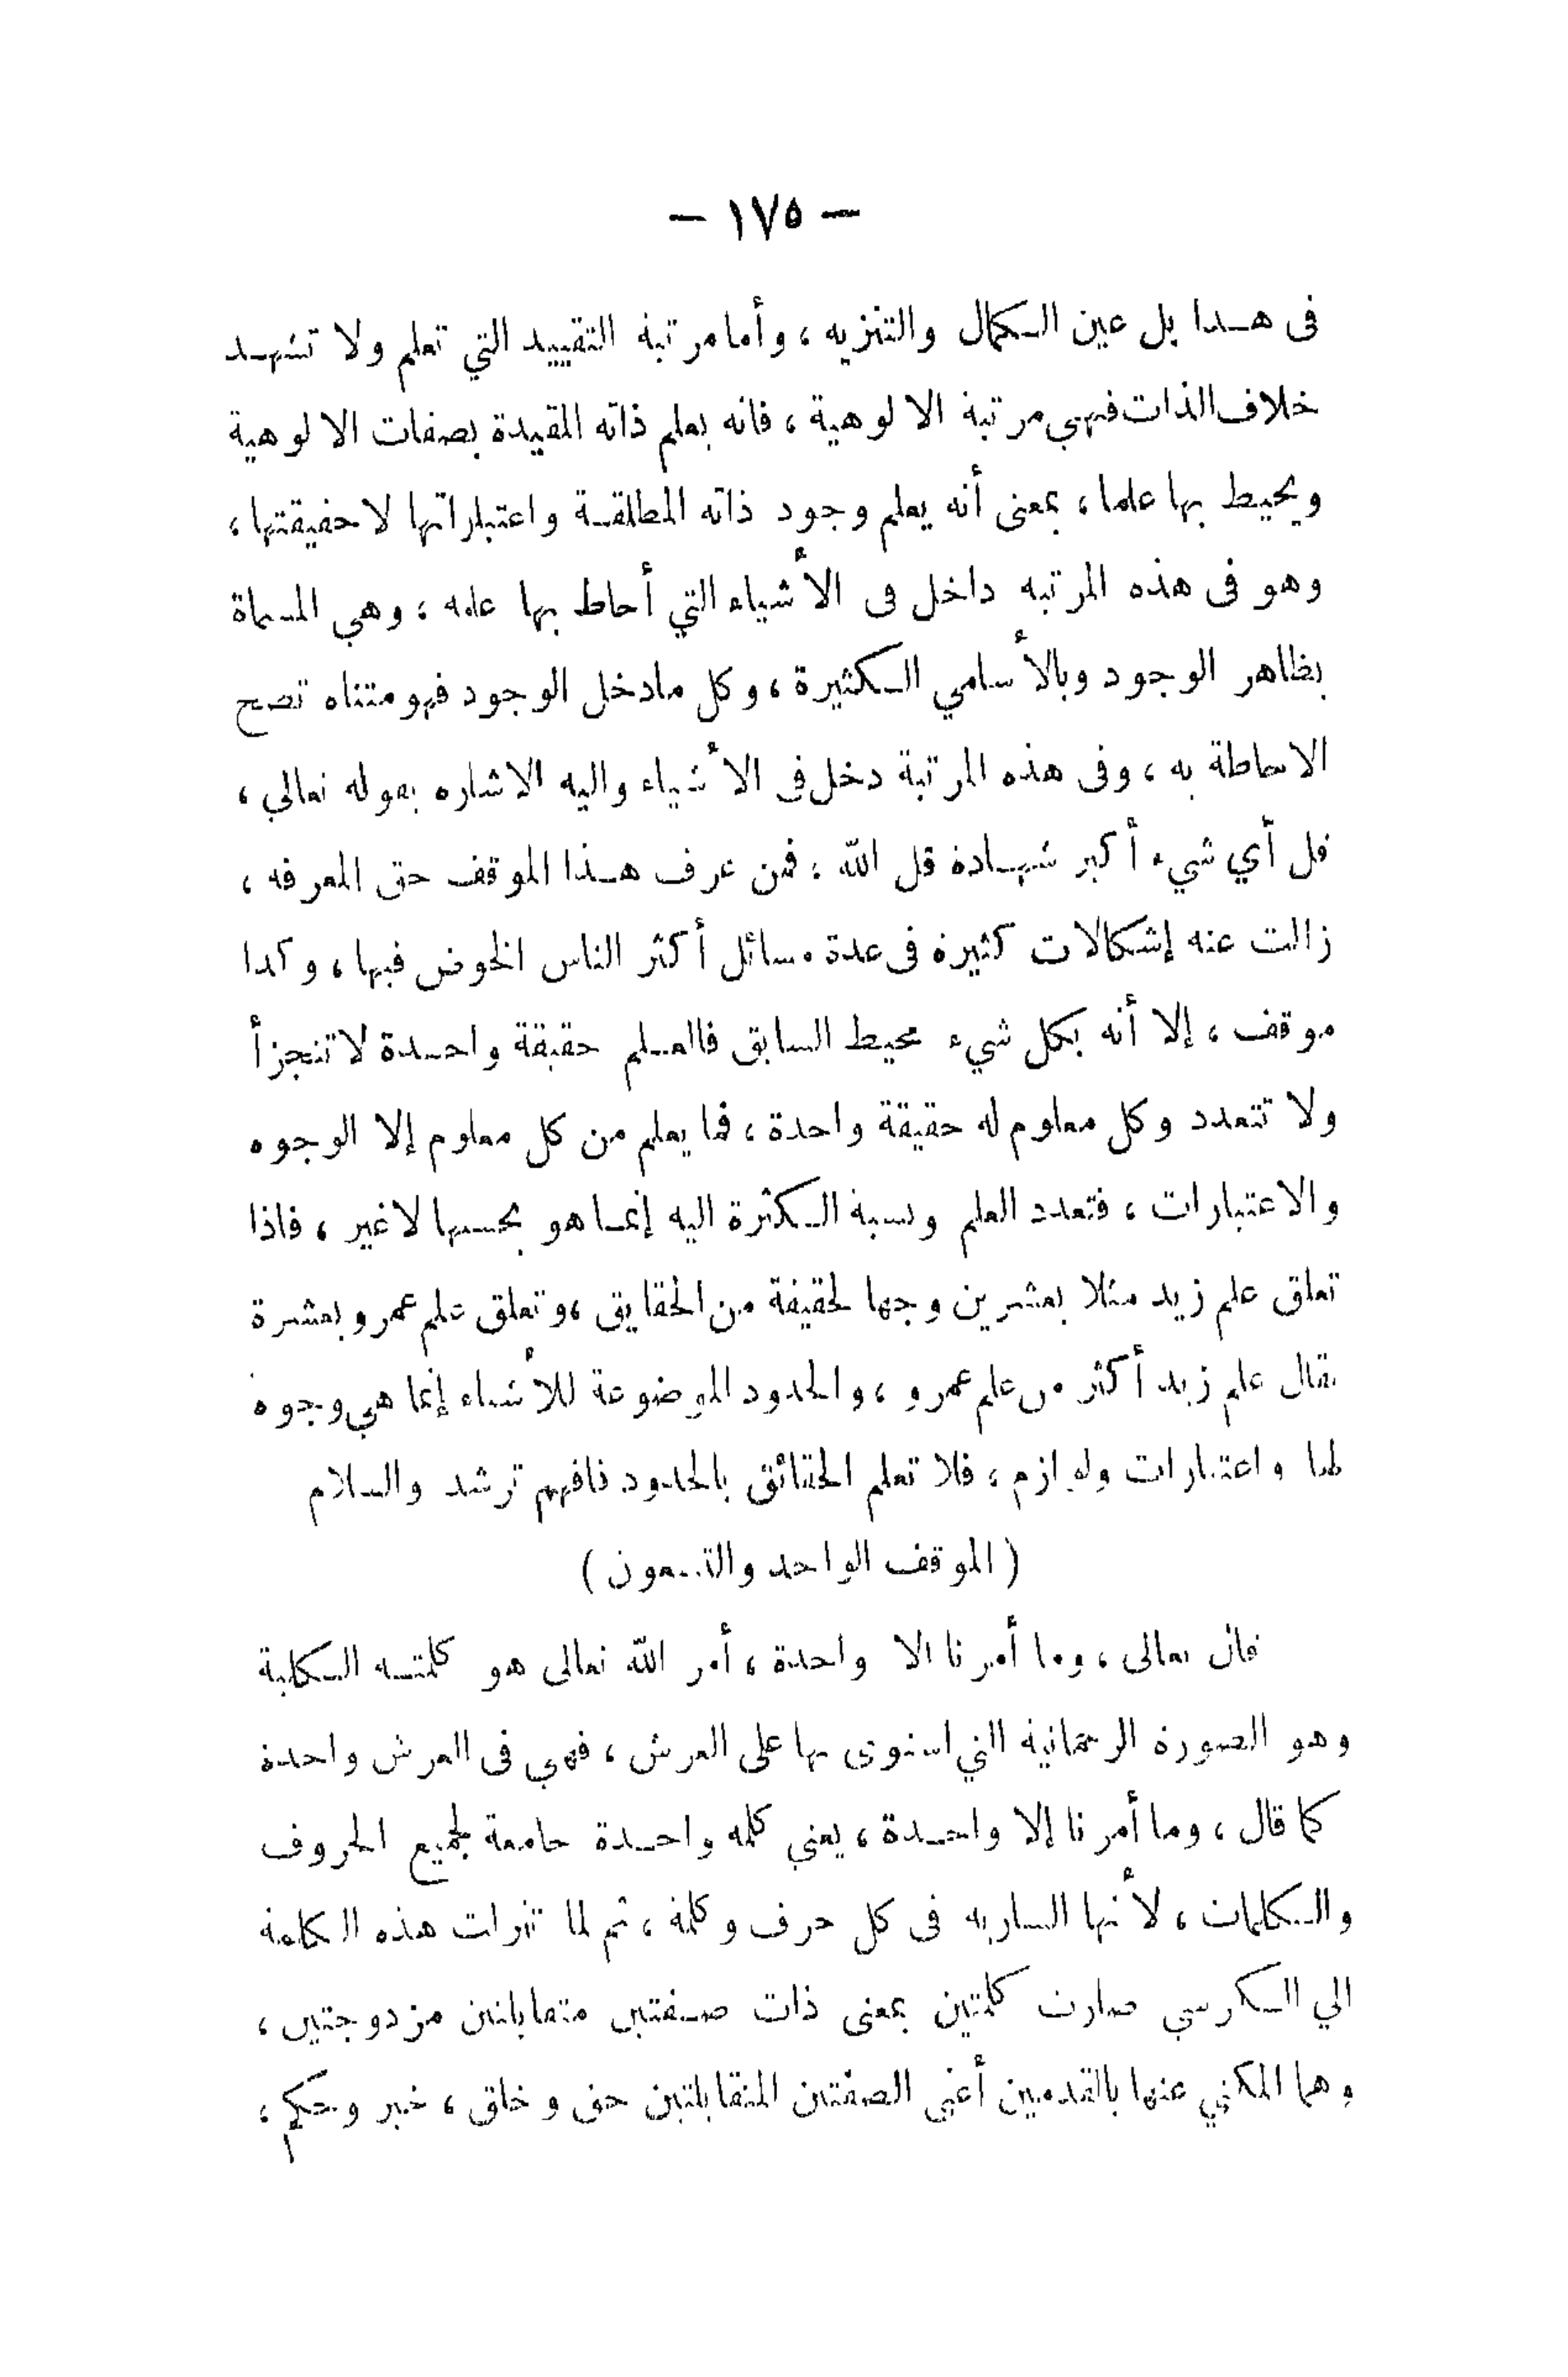 — ١٧٥ —
فى هـذا بل عين الـكمال والتنزيه ، وأما مرتبة التقييد التي تعلم ولا تشهـد
خلاف الذات فهي مرتبة الالوهية ، فانه يعلم ذاته المقيدة بصفات الالوهية
ويحيط بها علما ، بمعنى أنه يعلم وجود ذاته المطلقـة واعتباراتها لا حقيقتها ،
وهو فى هذه المرتبه داخل فى الأشياء التي أحاط بها علمه ، وهي المسماة
بظاهر الوجود وبالأسامي الـكثيرة ، وكل مادخل الوجود فهو متناه تصح
الاحاطة به ، وفى هذه المرتبة دخل فى الأشياء واليه الاشاره بقوله تعالي ،
قل أي شيء أكبر شهـادة قل الله ، فمن عرف هـذا الموقف حق المعرفه ،
زالت عنه إشكالات كثيرة فى عدة مسائل أكثر الناس الخوض فيها ، وكذا
موقف ، إلا أنه بكل شيء محيط السابق فالعـلم حقيقة واحـدة لا تتجزأ
ولا تتعدد وكل معلوم له حقيقة واحدة ، فما يعلم من كل معلوم إلا الوجوه
والاعتبارات ، فتعدد العلم ونسبة الـكثرة اليه إنمـا هو بحسبها لا غير ، فاذا
تعلق علم زيد مثلا بعشرين وجها لحقيقة من الحقايق ، وتعلق علم عمرو بعشرة
يقال علم زيد أكثر من علم عمرو ، والحدود الموضوعة للأشياء إنما هي وجوه
لها واعتبارات ولوازم ، فلا تعلم الحقائق بالحدود فافهم ترشد والسلام
( الموقف الواحد والتسعون )
قال تعالى ، وما أمرنا الا واحدة ، أمر الله تعالى هو كلمتـه الـكلية
وهو الصورة الرحمانية التي استوى بها على العرش ، فهي فى العرش واحدة
كما قال ، وما أمرنا إلا واحـدة ، يعني كلمه واحـدة جامعة لجميع الحروف
والـكلمات ، لأنها الساريه فى كل حرف وكلمة ، ثم لما تنزلت هذه الـكلمة
الي الـكرسي صارت كلمتين بمعنى ذات صـفتين متقابلتين مزدوجتين ،
وهما المكني عنها بالقدمين أعني الصفتين المتقابلتين حق وخلق ، خبر وحكم ،